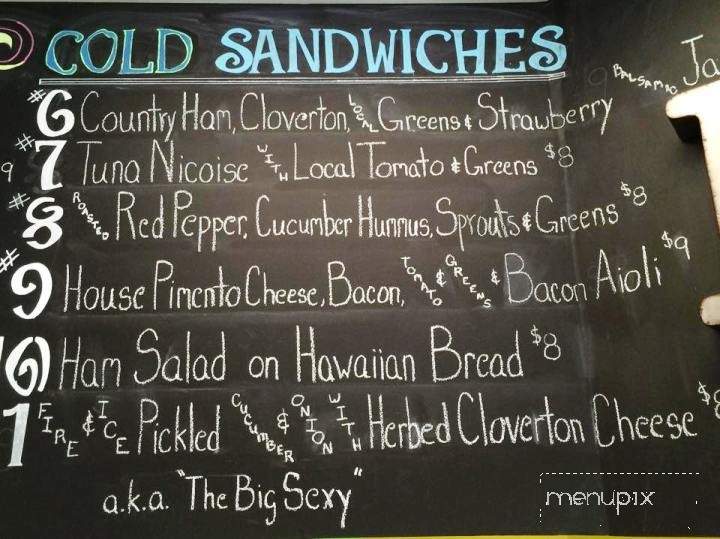 COLD SANDWICHES
#6 Country Ham, Cloverton, LOCAL Greens & Strawberry BALSAMIC Ja
#7 Tuna Nicoise WITH Local Tomato & Greens $8
#8 ROASTED Red Pepper, Cucumber Hummus, Sprouts & Greens $8
#9 House Pimento Cheese, Bacon, TOMATO & GREENS & Bacon Aioli $9
10 Ham Salad on Hawaiian Bread $8
1 FIRE & ICE Pickled CUCUMBER & ONION WITH Herbed Cloverton Cheese $8
a.k.a. "The Big Sexy"
menupix